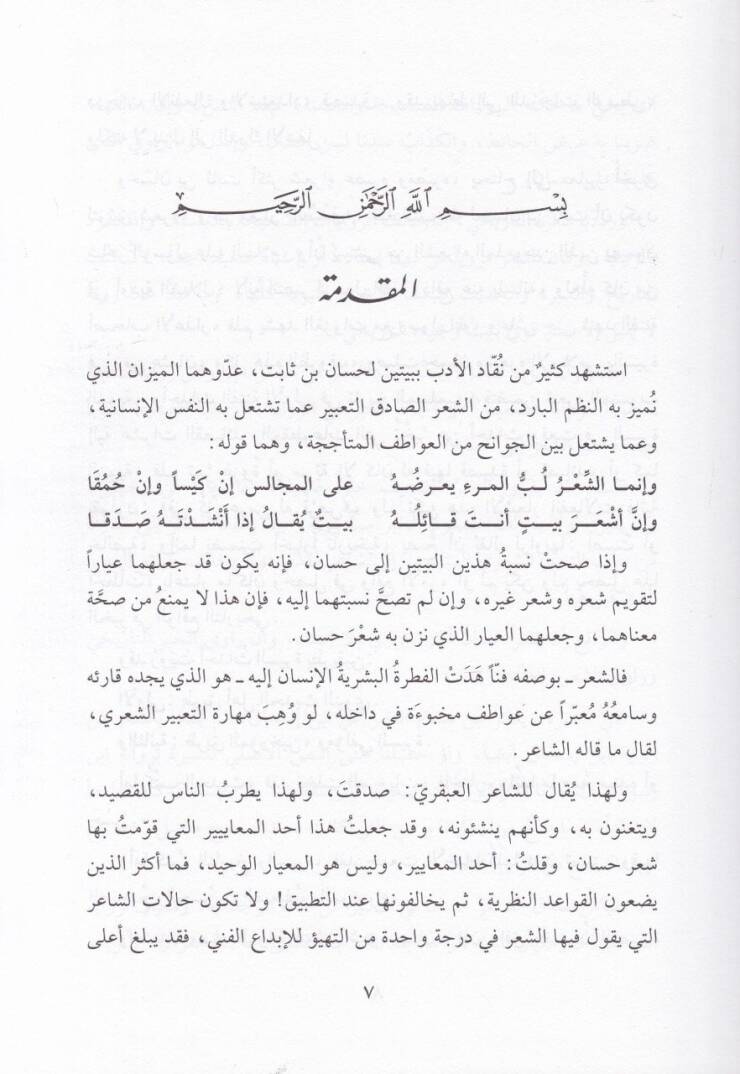 بِسْمِ اللَّهِ الرَّحْمَٰنِ الرَّحِيمِ
المقدمة
استشهد كثيرٌ من نُقّاد الأدب ببيتين لحسان بن ثابت، عدّوهما الميزان الذي
نُميز به النظم البارد، من الشعر الصادق التعبير عما تشتعل به النفس الإنسانية،
وعما يشتعل بين الجوانح من العواطف المتأججة، وهما قوله:
وإنما الشعْرُ لُبُّ المرءِ يعرضُهُ على المجالس إنْ كَيْساً وإنْ حُمُقَا
وإنَّ أشْعَرَ بيتٍ أنتَ قائِلُهُ بيتٌ يُقالُ إذا أنْشَدْتَهُ صدقا
وإذا صحتْ نسبةُ هذين البيتين إلى حسان، فإنه يكون قد جعلهما عياراً
لتقويم شعره وشعر غيره، وإن لم تصحَّ نسبتهما إليه، فإن هذا لا يمنعُ من صحّة
معناهما، وجعلهما العيار الذي نزن به شعْرَ حسان.
فالشعر ـ بوصفه فنّاً هَدَتْ الفطرةُ البشريةُ الإنسان إليه ـ هو الذي يجده قارئه
وسامعُهُ مُعبّراً عن عواطف مخبوءَة في داخله، لو وُهِبَ مهارة التعبير الشعري،
لقال ما قاله الشاعر.
ولهذا يُقال للشاعر العبقري: صدقتَ، ولهذا يطربُ الناس للقصيد،
ويتغنون به، وكأنهم ينشئونه، وقد جعلتُ هذا أحد المعاييير التي قوّمتُ بها
شعر حسان، وقلتُ: أحد المعايير، وليس هو المعيار الوحيد، فما أكثر الذين
يضعون القواعد النظرية، ثم يخالفونها عند التطبيق! ولا تكون حالات الشاعر
التي يقول فيها الشعر في درجة واحدة من التهيؤ للإبداع الفني، فقد يبلغ أعلى
٧